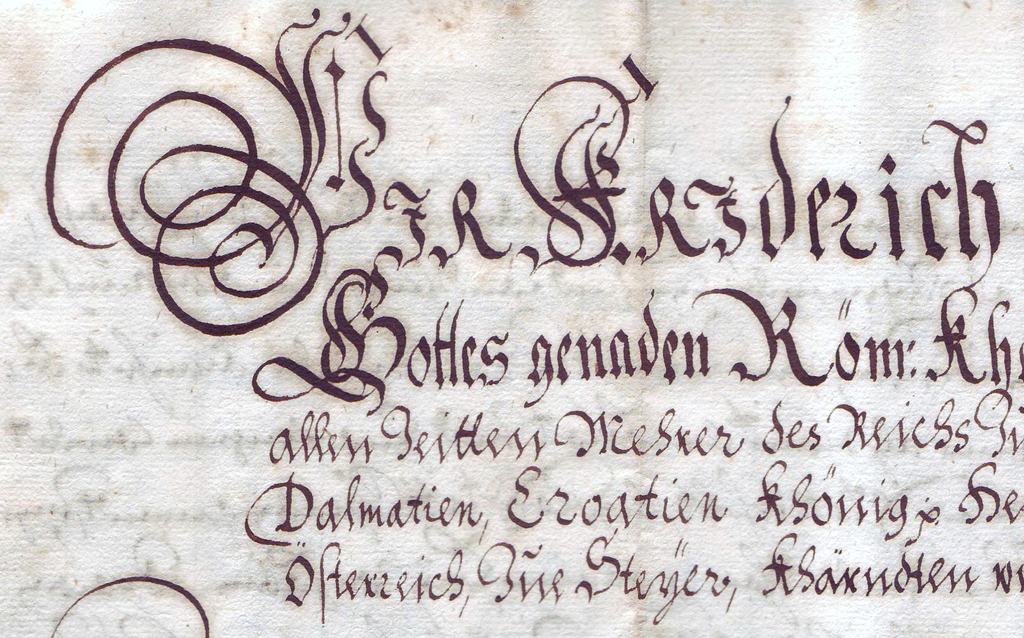 WIR FRIderich
Gottes genaden Röm: Kh
allen Zeitten Mehrer des Reichs Zu
Dalmatien, Croatien Khönig
Österreich, Zue Steyer, Khärndten